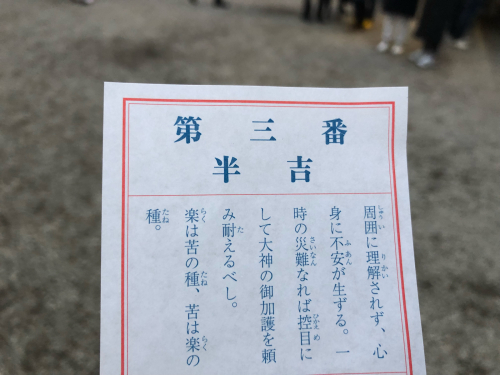 第三番
半吉
周囲に理解されず、心
身に不安が生ずる。一
時の災難なれば控目に
して大神の御加護を頼
み耐えるべし。
楽は苦の種、苦は楽の
種。